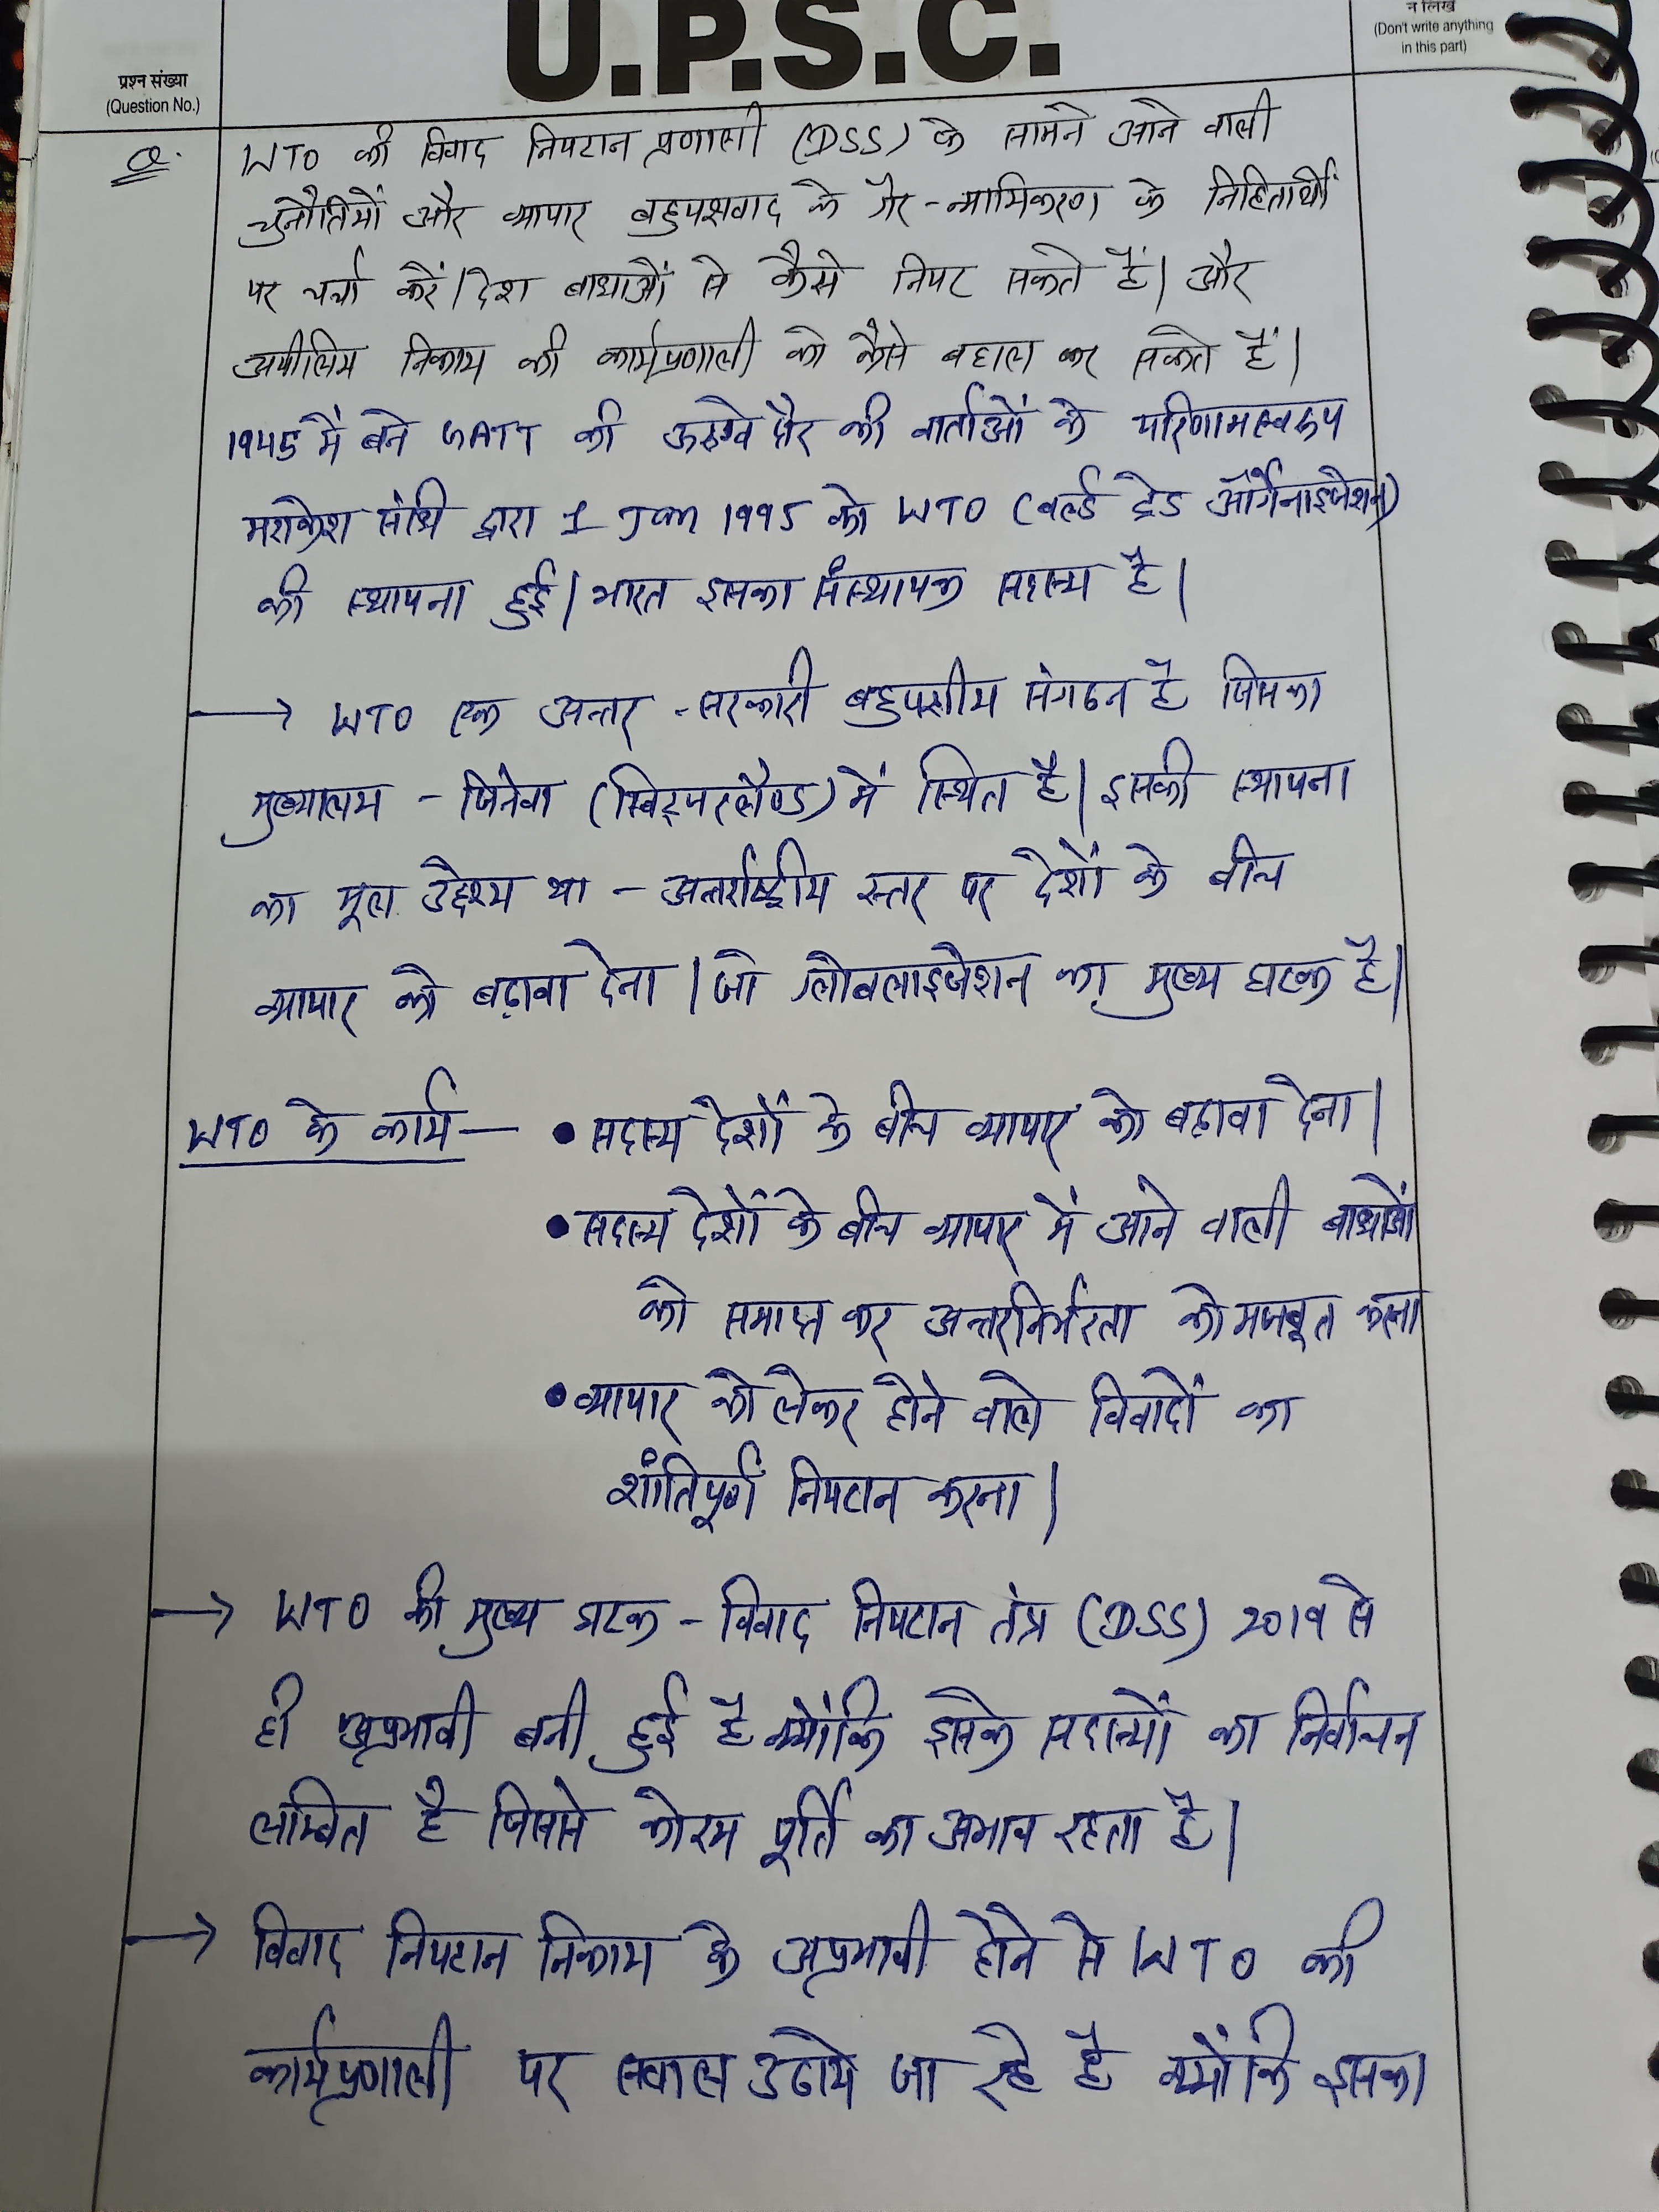 U.P.S.C.
न लिखें
(Don't write anything
in this part)
प्रश्न संख्या
(Question No.)
Q. WTO की विवाद निपटान प्रणाली (DSS) के सामने आने वाली
चुनौतियों और व्यापार बहुपक्षवाद के गैर-न्यायिकरण के निहितार्थों
पर चर्चा करें। देश बाधाओं से कैसे निपट सकते हैं। और
अपीलिय निकाय की कार्यप्रणाली को कैसे बहाल कर सकते हैं।
1945 में बने GATT की ऊरुग्वे दौर की वार्ताओं के परिणामस्वरूप
मराकेश संधि द्वारा 1 Jan 1995 को WTO (वर्ल्ड ट्रेड ऑर्गेनाइजेशन)
की स्थापना हुई। भारत इसका संस्थापक सदस्य है।
→ WTO एक अन्तर-सरकारी बहुपक्षीय संगठन है जिसका
मुख्यालय - जिनेवा (स्विट्जरलैण्ड) में स्थित है। इसकी स्थापना
का मूल उद्देश्य था - अन्तर्राष्ट्रीय स्तर पर देशों के बीच
व्यापार को बढ़ावा देना। जो ग्लोबलाइजेशन का मुख्य घटक है।
WTO के कार्य — • सदस्य देशों के बीच व्यापार को बढ़ावा देना।
• सदस्य देशों के बीच व्यापार में आने वाली बाधाओं
को समाप्त कर अन्तरनिर्भरता को मजबूत करना
• व्यापार को लेकर होने वाले विवादों का
शांतिपूर्ण निपटान करना।
→ WTO की मुख्य घटक - विवाद निपटान तंत्र (DSS) 2019 से
ही अप्रभावी बनी हुई है क्योंकि इसके सदस्यों का निर्वाचन
लम्बित है जिससे कोरम पूर्ति का अभाव रहता है।
→ विवाद निपटान निकाय के अप्रभावी होने से WTO की
कार्यप्रणाली पर सवाल उठाये जा रहे है क्योंकि इसका